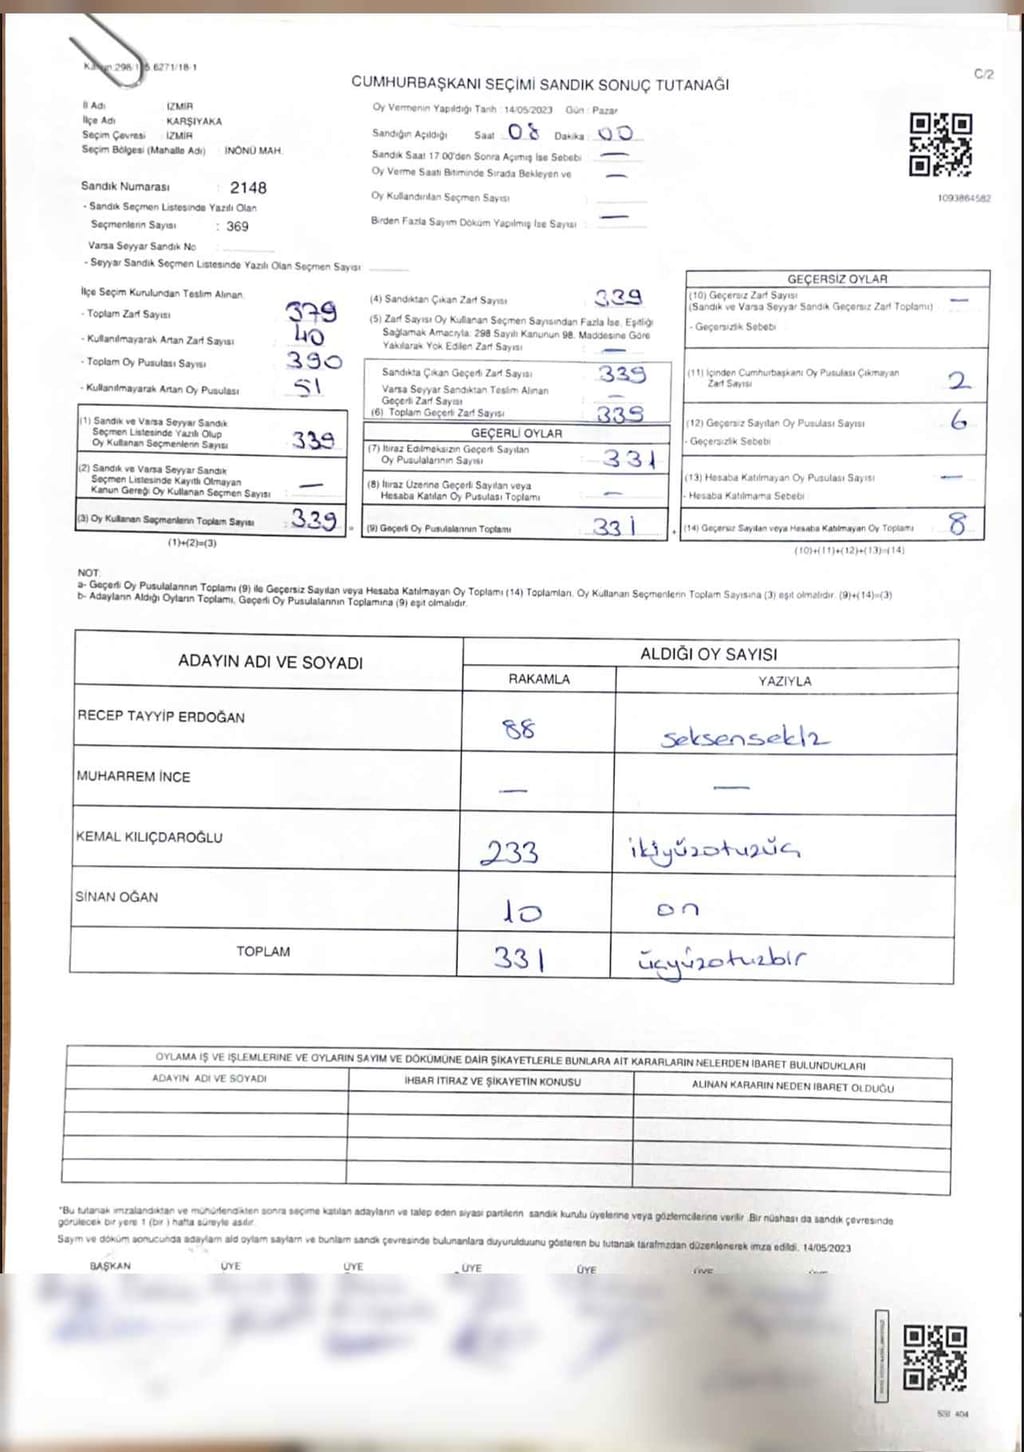 298/1 6271/18-1
C/2
CUMHURBAŞKANI SEÇİMİ SANDIK SONUÇ TUTANAĞI
İl Adı İZMİR
İlçe Adı KARŞIYAKA
Seçim Çevresi : İZMİR
Seçim Bölgesi (Mahalle Adı) : İNÖNÜ MAH.
Oy Vermenin Yapıldığı Tarih : 14/05/2023 Gün : Pazar
Sandığın Açıldığı Saat 08 Dakika 00
Sandık Saat 17.00'den Sonra Açımış İse Sebebi : —
Oy Verme Saati Bitiminde Sırada Bekleyen ve —
Oy Kullandırılan Seçmen Sayısı
Birden Fazla Sayım Döküm Yapılmış İse Sayısı : —
1093864582
Sandık Numarası : 2148
- Sandık Seçmen Listesinde Yazılı Olan
Seçmenlerin Sayısı : 369
Varsa Seyyar Sandık No :
- Seyyar Sandık Seçmen Listesinde Yazılı Olan Seçmen Sayısı
İlçe Seçim Kurulundan Teslim Alınan
- Toplam Zarf Sayısı 379
- Kullanılmayarak Artan Zarf Sayısı 40
- Toplam Oy Pusulası Sayısı 390
- Kullanılmayarak Artan Oy Pusulası 51
(1) Sandık ve Varsa Seyyar Sandık
Seçmen Listesinde Yazılı Olup
Oy Kullanan Seçmenlerin Sayısı 339
(2) Sandık ve Varsa Seyyar Sandık
Seçmen Listesinde Kayıtlı Olmayan
Kanun Gereği Oy Kullanan Seçmen Sayısı : —
(3) Oy Kullanan Seçmenlerin Toplam Sayısı : 339
(1)+(2)=(3)
(4) Sandıktan Çıkan Zarf Sayısı 339
(5) Zarf Sayısı Oy Kullanan Seçmen Sayısından Fazla İse, Eşitliği
Sağlamak Amacıyla, 298 Sayılı Kanunun 98. Maddesine Göre
Yakılarak Yok Edilen Zarf Sayısı —
Sandıkta Çıkan Geçerli Zarf Sayısı 339
Varsa Seyyar Sandıktan Teslim Alınan
Geçerli Zarf Sayısı —
(6) Toplam Geçerli Zarf Sayısı 339
GEÇERLİ OYLAR
(7) İtiraz Edilmeksizin Geçerli Sayılan
Oy Pusulalarının Sayısı 331
(8) İtiraz Üzerine Geçerli Sayılan veya
Hesaba Katılan Oy Pusulası Toplamı —
(9) Geçerli Oy Pusulalarının Toplamı 331
GEÇERSİZ OYLAR
(10) Geçersiz Zarf Sayısı —
(Sandık ve Varsa Seyyar Sandık Geçersiz Zarf Toplamı)
- Geçersizlik Sebebi
(11) İçinden Cumhurbaşkanı Oy Pusulası Çıkmayan
Zarf Sayısı 2
(12) Geçersiz Sayılan Oy Pusulası Sayısı 6
- Geçersizlik Sebebi
(13) Hesaba Katılmayan Oy Pusulası Sayısı —
- Hesaba Katılmama Sebebi
(14) Geçersiz Sayılan veya Hesaba Katılmayan Oy Toplamı 8
(10)+(11)+(12)+(13)=(14)
NOT:
a- Geçerli Oy Pusulalarının Toplamı (9) ile Geçersiz Sayılan veya Hesaba Katılmayan Oy Toplamı (14) Toplamları, Oy Kullanan Seçmenlerin Toplam Sayısına (3) eşit olmalıdır. (9)+(14)=(3)
b- Adayların Aldığı Oyların Toplamı, Geçerli Oy Pusulalarının Toplamına (9) eşit olmalıdır.
ADAYIN ADI VE SOYADI ALDIĞI OY SAYISI
RAKAMLA YAZIYLA
RECEP TAYYİP ERDOĞAN 88 seksensekiz
MUHARREM İNCE — —
KEMAL KILIÇDAROĞLU 233 ikiyüzotuzüç
SİNAN OĞAN 10 on
TOPLAM 331 üçyüzotuzbir
OYLAMA İŞ VE İŞLEMLERİNE VE OYLARIN SAYIM VE DÖKÜMÜNE DAİR ŞİKAYETLERLE BUNLARA AİT KARARLARIN NELERDEN İBARET BULUNDUKLARI
ADAYIN ADI VE SOYADI İHBAR İTİRAZ VE ŞİKAYETİN KONUSU ALINAN KARARIN NEDEN İBARET OLDUĞU
"Bu tutanak imzalandıktan ve mühürlendikten sonra seçime katılan adayların ve talep eden siyasi partilerin sandık kurulu üyelerine veya gözlemcilerine verilir. Bir nüshası da sandık çevresinde
görülecek bir yere 1 (bir ) hafta süreyle asılır.
Sayım ve döküm sonucunda adayların ald oyların sayların ve bunların sandık çevresinde bulunanlara duyurulduunu gösteren bu tutanak tarafımzdan düzenlenerek imza edildi. 14/05/2023
BAŞKAN ÜYE ÜYE ÜYE ÜYE ÜYE
SSI 404